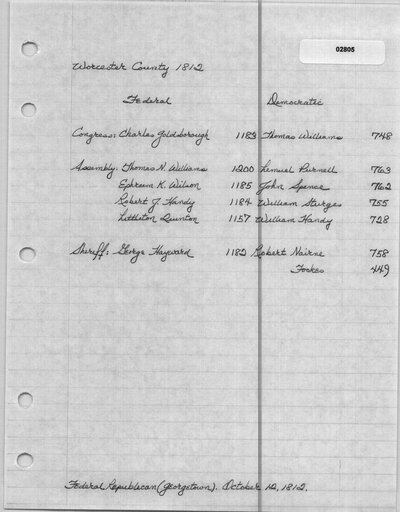 02805
Worcester County 1812
Federal Democratic
Congress: Charles Goldsborough 1183 Thomas Williams 748
Assembly: Thomas N. Williams 1200 Lemuel Purnell 763
Ephraim K. Wilson 1185 John Spence 762
Robert J. Handy 1184 William Sturges 755
Littleton Quinton 1157 William Handy 728
Sheriff: George Hayward 1182 Robert Nairne 758
Fookes 449
Federal Republican (Georgetown). October 12, 1812.